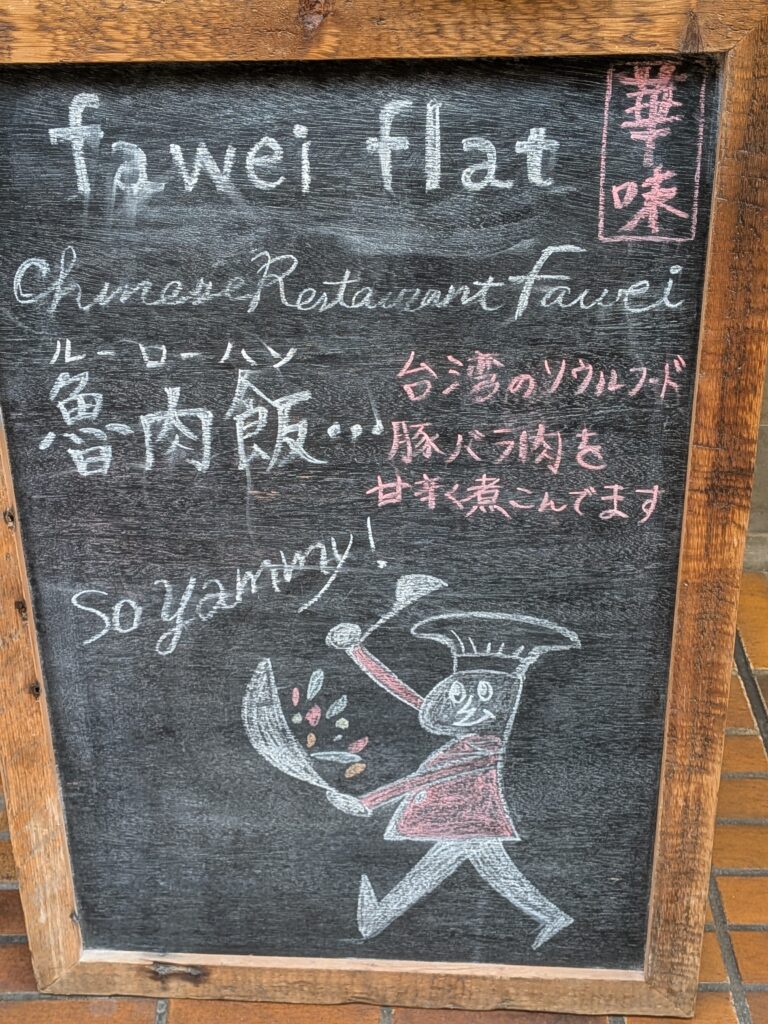 fawei flat
華味
Chinese Restaurant Fawei
ルーローハン
魯肉飯...
台湾のソウルフード
豚バラ肉を
甘辛く煮こんでます
So Yammy!